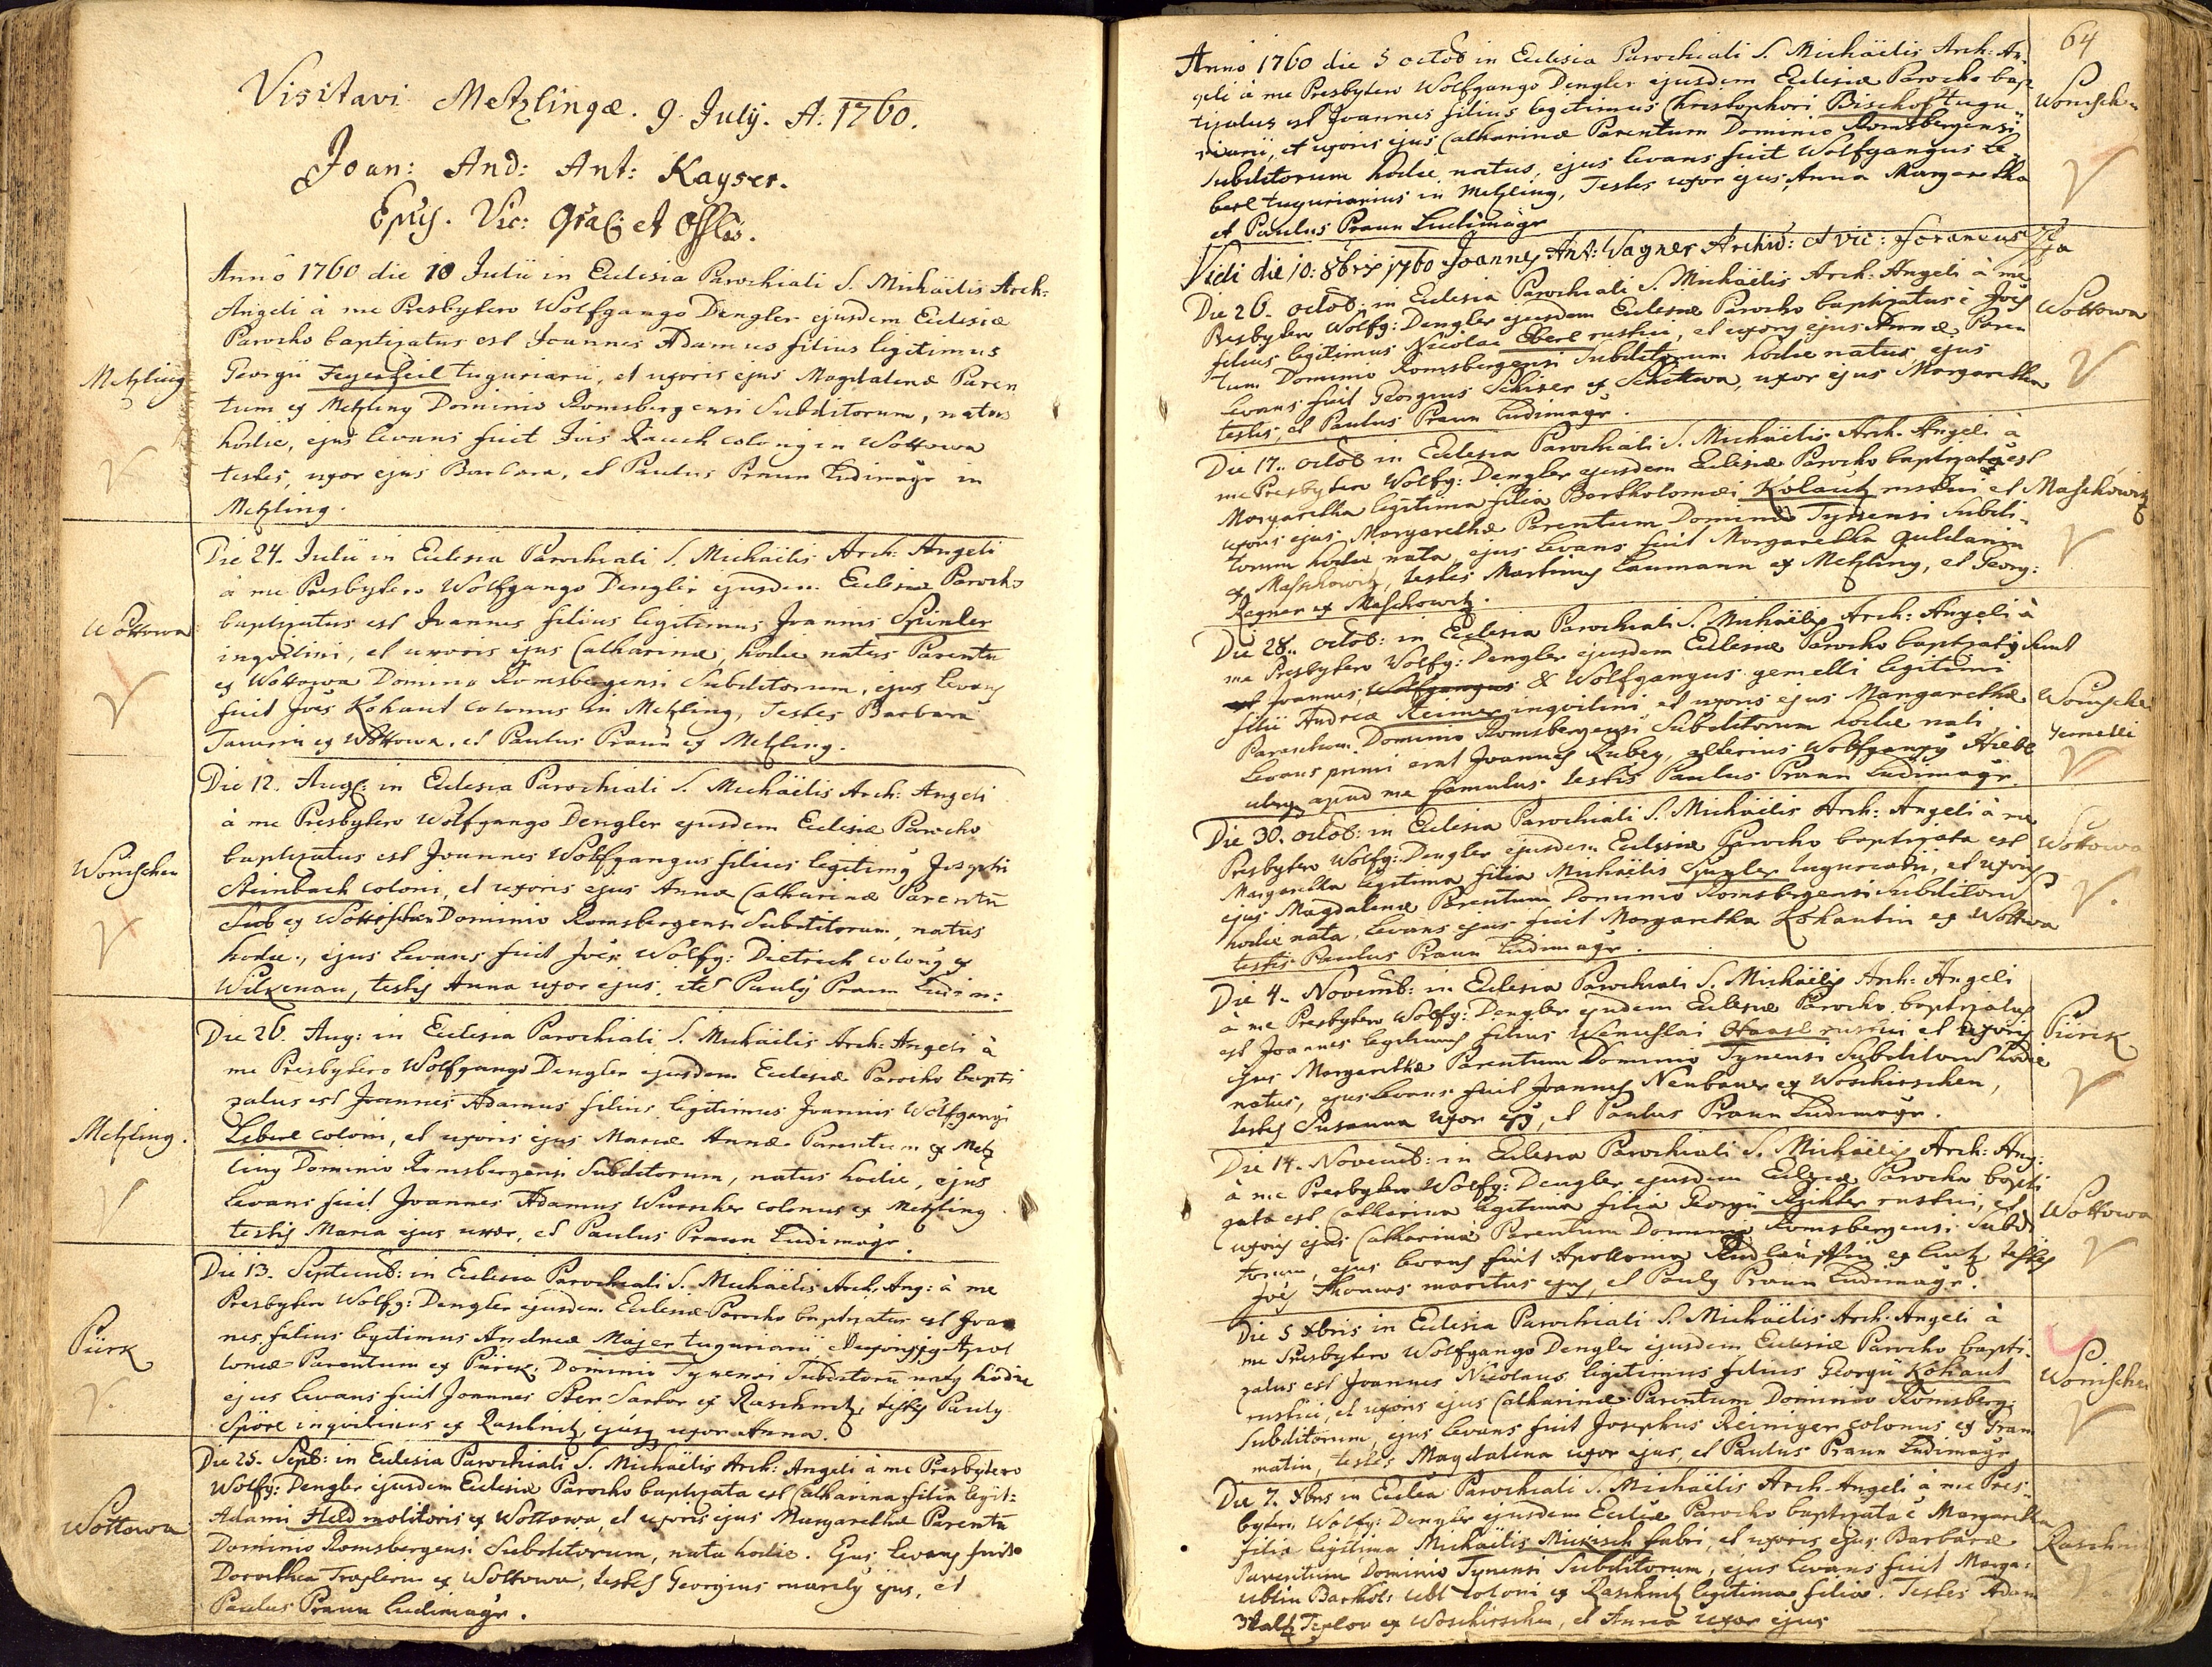 Visitavi Metzlingæ. 9. July. A: 1760.
Joan: And: Ant: Kayser.
Epus. Vic: Gnalis et Offlis.
Metzling
Anno 1760 die 10 Julii in Eclesia Parochiali S. Michäelis Arch:
Angeli à me Presbytero Wolfgango Dengler ejusdem Eclesiæ
Parocho baptizatus est Joannes Adamus filius legitimus
Georgii Feyerfeil tuguriarii, et uxoris ejus Magdalenæ Paren
tum ex Metzling Dominio Romsbergensi Subditorum, natus
hodie, ejus levans fuit Jois Rauch colonus in Wottowa
testes, uxor ejus Barbara, et Paulus Praun Ludimagr in
Metzling.
Wottowa
Die 24. Julii in Eclesia Parochiali S. Michäelis Arch: Angeli
à me Presbytero Wolfgango Dengler ejusdem Eclesiæ Parocho
baptizatus est Joannes filius legitimus Joannis Spinler
inqvilini, et uxoris ejus Catharinæ, hodie natus Parentū
ex Wottowa Dominio Romsbergensi Subditorum, ejus levans
fuit Joës Kohaut colonus in Metzling, Testes Barbara
ex Wottowa, et Paulus Praun ex Metzling.
Wonischen
Die 12. Aug: in Eclesia Parochiali S. Michäelis Arch: Angeli
à me Presbytero Wolfgango Dengler ejusdem Eclesiæ Parocho
baptizatus est Joannes Wolfgangus filius legitimus Josephi
Steinbach coloni, et uxoris ejus Annæ Catharinæ Parentū
ex Dominio Romsbergensi Subditorum, natus
hodie, ejus levans fuit Joës Wolfg: Dietrich colonus ex
Wilkenau, testis Anna uxor ejus, et Paulus Praun Ludim:
Metzling.
Die 26. Aug: in Eclesia Parochiali S. Michäelis Arch: Angeli à
me Presbytero Wolfgango Dengler ejusdem Eclesiæ Parocho bapti
zatus est Joannes Adamus filius legitimus Joannis Wolfgangi
Leberl coloni, et uxoris ejus Mariæ Annæ Parentum ex Metz
ling Dominio Romsbergensi Subditorum, natus hodie, ejus
levans fuit Joannes Adamus Wurscher colonus ex Metzling
testis Maria ejus uxor, et Paulus Praun Ludimagr.
Pürk
Die 13. Septemb: in Eclesia Parochiali S. Michäelis Arch: Ang: à me
Presbytero Wolfg: Dengler ejusdem Eclesiæ Parocho baptizatus est Joan
nes filius legitimus Andreæ Majer tuguriarii, et uxoris ejus Apol
loniæ Parentum ex Pürck, Dominio Tynensi Subditorū natus hodie
ejus levans fuit Joannes Ster Sartor ex Raschnitz, testis Paulus
Spörl inqvilinus ex Raschnitz, ejusq uxor Anna.
Wottowa
Die 25. Sepb: in Eclesia Parochiali S. Michäelis Arch: Angeli à me Presbytero
Wolfg: Dengler ejusdem Eclesiæ Parocho baptizata est Catharina filia legit:
Adami Held molitoris ex Wottowa, et uxoris ejus Margarethæ Parentū
Dominio Romsbergensi Subditorum, nata hodie. Ejus levans fuit
Dorothea Traxlerin ex Wottowa, testes Georgius maritus ejus, et
Paulus Praun Ludimagr.
64
Wonischen
Anno 1760 die 5 octob in Eclesia Parochiali S. Michäelis Arch: An
geli à me Presbytero Wolfgango Dengler ejusdem Eclesiæ Parocho bap
tizatus est Joannes filius legitimus Christophori Bischof tugu
riarii, et uxoris ejus Catharinæ Parentum Dominio Romsbergensi
Subditorum hodie natus, ejus levans fuit Wolfgangus Le
berl tuguriarius in Metzling, Testes uxor ejus Anna Margaretha
et Paulus Praun Ludimagr
Vidi die 10: 8bris 1760 Joannes Ant: Wagner Archid: et vic: foraneus
Wottowa
Die 26. octob: in Eclesia Parochiali S. Michäelis Arch: Angeli à me
Presbytero Wolfg: Dengler ejusdem Eclesiæ Parocho baptizatus ē Joës
filius legitimus Nicolai Eberl rustici, et uxoris ejus Annæ Paren
tum Dominio Romsbergensi Subditorum hodie natus, ejus
levans fuit Georgius Schiser ex Schittwa, uxor ejus Margaretha
testes, et Paulus Praun Ludimagr.
Maschowitz
Die 17. octob in Eclesia Parochiali S. Michäelis Arch. Angeli à
me Presbytero Wolfg: Dengler ejusdem Eclesiæ Parocho baptizata est
Margaretha legitima filia Bartholomæi Kolautz rustici et
uxoris ejus Margarethæ Parentum Dominio Tynensi Subdi-
torum hodie nata, ejus levans fuit Margaretha Guldanin
ex Maschowitz, testes Martinus Laumann ex Metzling, et Georg:
Ragner ex Maschowitz.
Wonischen
gemelli
Die 28. octob: in Eclesia Parochiali S. Michäelis Arch: Angeli à
me Presbytero Wolfg: Dengler ejusdem Eclesiæ Parocho baptizati sunt
Joannes, Wolfgangus & Wolfgangus gemelli legitimi
filii Andreæ Reimer inqvilini et uxoris ejus Margarethæ
Parentum Dominio Romsbergensi Subditorum hodie nati
levans primi erat Joannes Rubey, alterius Wolfgangus Hiebl
apud me famulus, testis Paulus Praun Ludimagr.
Wottowa
Die 30. octob: in Eclesia Parochiali S. Michäelis Arch: Angeli à me
Presbytero Wolfg: Dengler ejusdem Eclesiæ Parocho baptizata est
Margaretha legitima filia Michäelis tuguriarii, et uxoris
ejus Magdalenæ Parentum Dominio Romsbergensi Subditorū
hodie nata, levans ejus fuit Margaretha Kohautin ex Wottwa
testis Paulus Praun Ludimagr.
Pürck
Die 4. Novemb: in Eclesia Parochiali S. Michäelis Arch: Angeli
à me Presbytero Wolfg: Dengler ejusdem Eclesiæ Parocho baptizatus
est Joannes legitimus filius Wenceslai Haasl rustici et uxoris
ejus Margarethæ Parentum Dominio Tynensi Subditorū hodie
natus, ejus levans fuit Joannes Neubauer ex Woschirschen,
testis Susanna uxor ejus, et Paulus Praun Ludimagr.
Wottowa
Die 14. Novemb: in Eclesia Parochiali S. Michäelis Arch: Ang:
à me Presbytero Wolfg: Dengler ejusdem Eclesiæ Parocho bapti
zata est Catharina legitima filia Georgii Richter rustici, et
uxoris ejus Catharinæ Parentum Dominio Romsbergensi Subdi
torum, ejus levans fuit Apollonia ex testes
Joës Thomas maritus ejus, et Paulus Praun Ludimagr.
Wonischen
Die 5 Xbris in Eclesia Parochiali S. Michäelis Arch: Angeli à
me Presbytero Wolfgango Dengler ejusdem Eclesiæ Parocho bapti-
zatus est Joannes Nicolaus legitimus filius Georgii Kohaut
rustici, et uxoris ejus Catharinæ Parentum Dominio Romsberg:
Subditorum, ejus levans fuit Josephus Reiniger colonus ex Gram
matin, testes Magdalena uxor ejus, et Paulus Praun Ludimagr
Raschnitz
Die 7. Xbris in Eclesia Parochiali S. Michäelis Arch-Angeli à me Pres-
bytero Wolfg: Dengler ejusdem Eclesiæ Parocho baptizata ē Margaretha
filia legitima Michäelis Mickisch fabri, et uxoris ejus Barbaræ
Parentum Dominio Tynensi Subditorum, ejus levans fuit Marga:
Ublin Barthol: Ubl coloni ex Raschnitz legitima filia. Testes Adam
Textor ex Woschirschen, et Anna uxor ejus